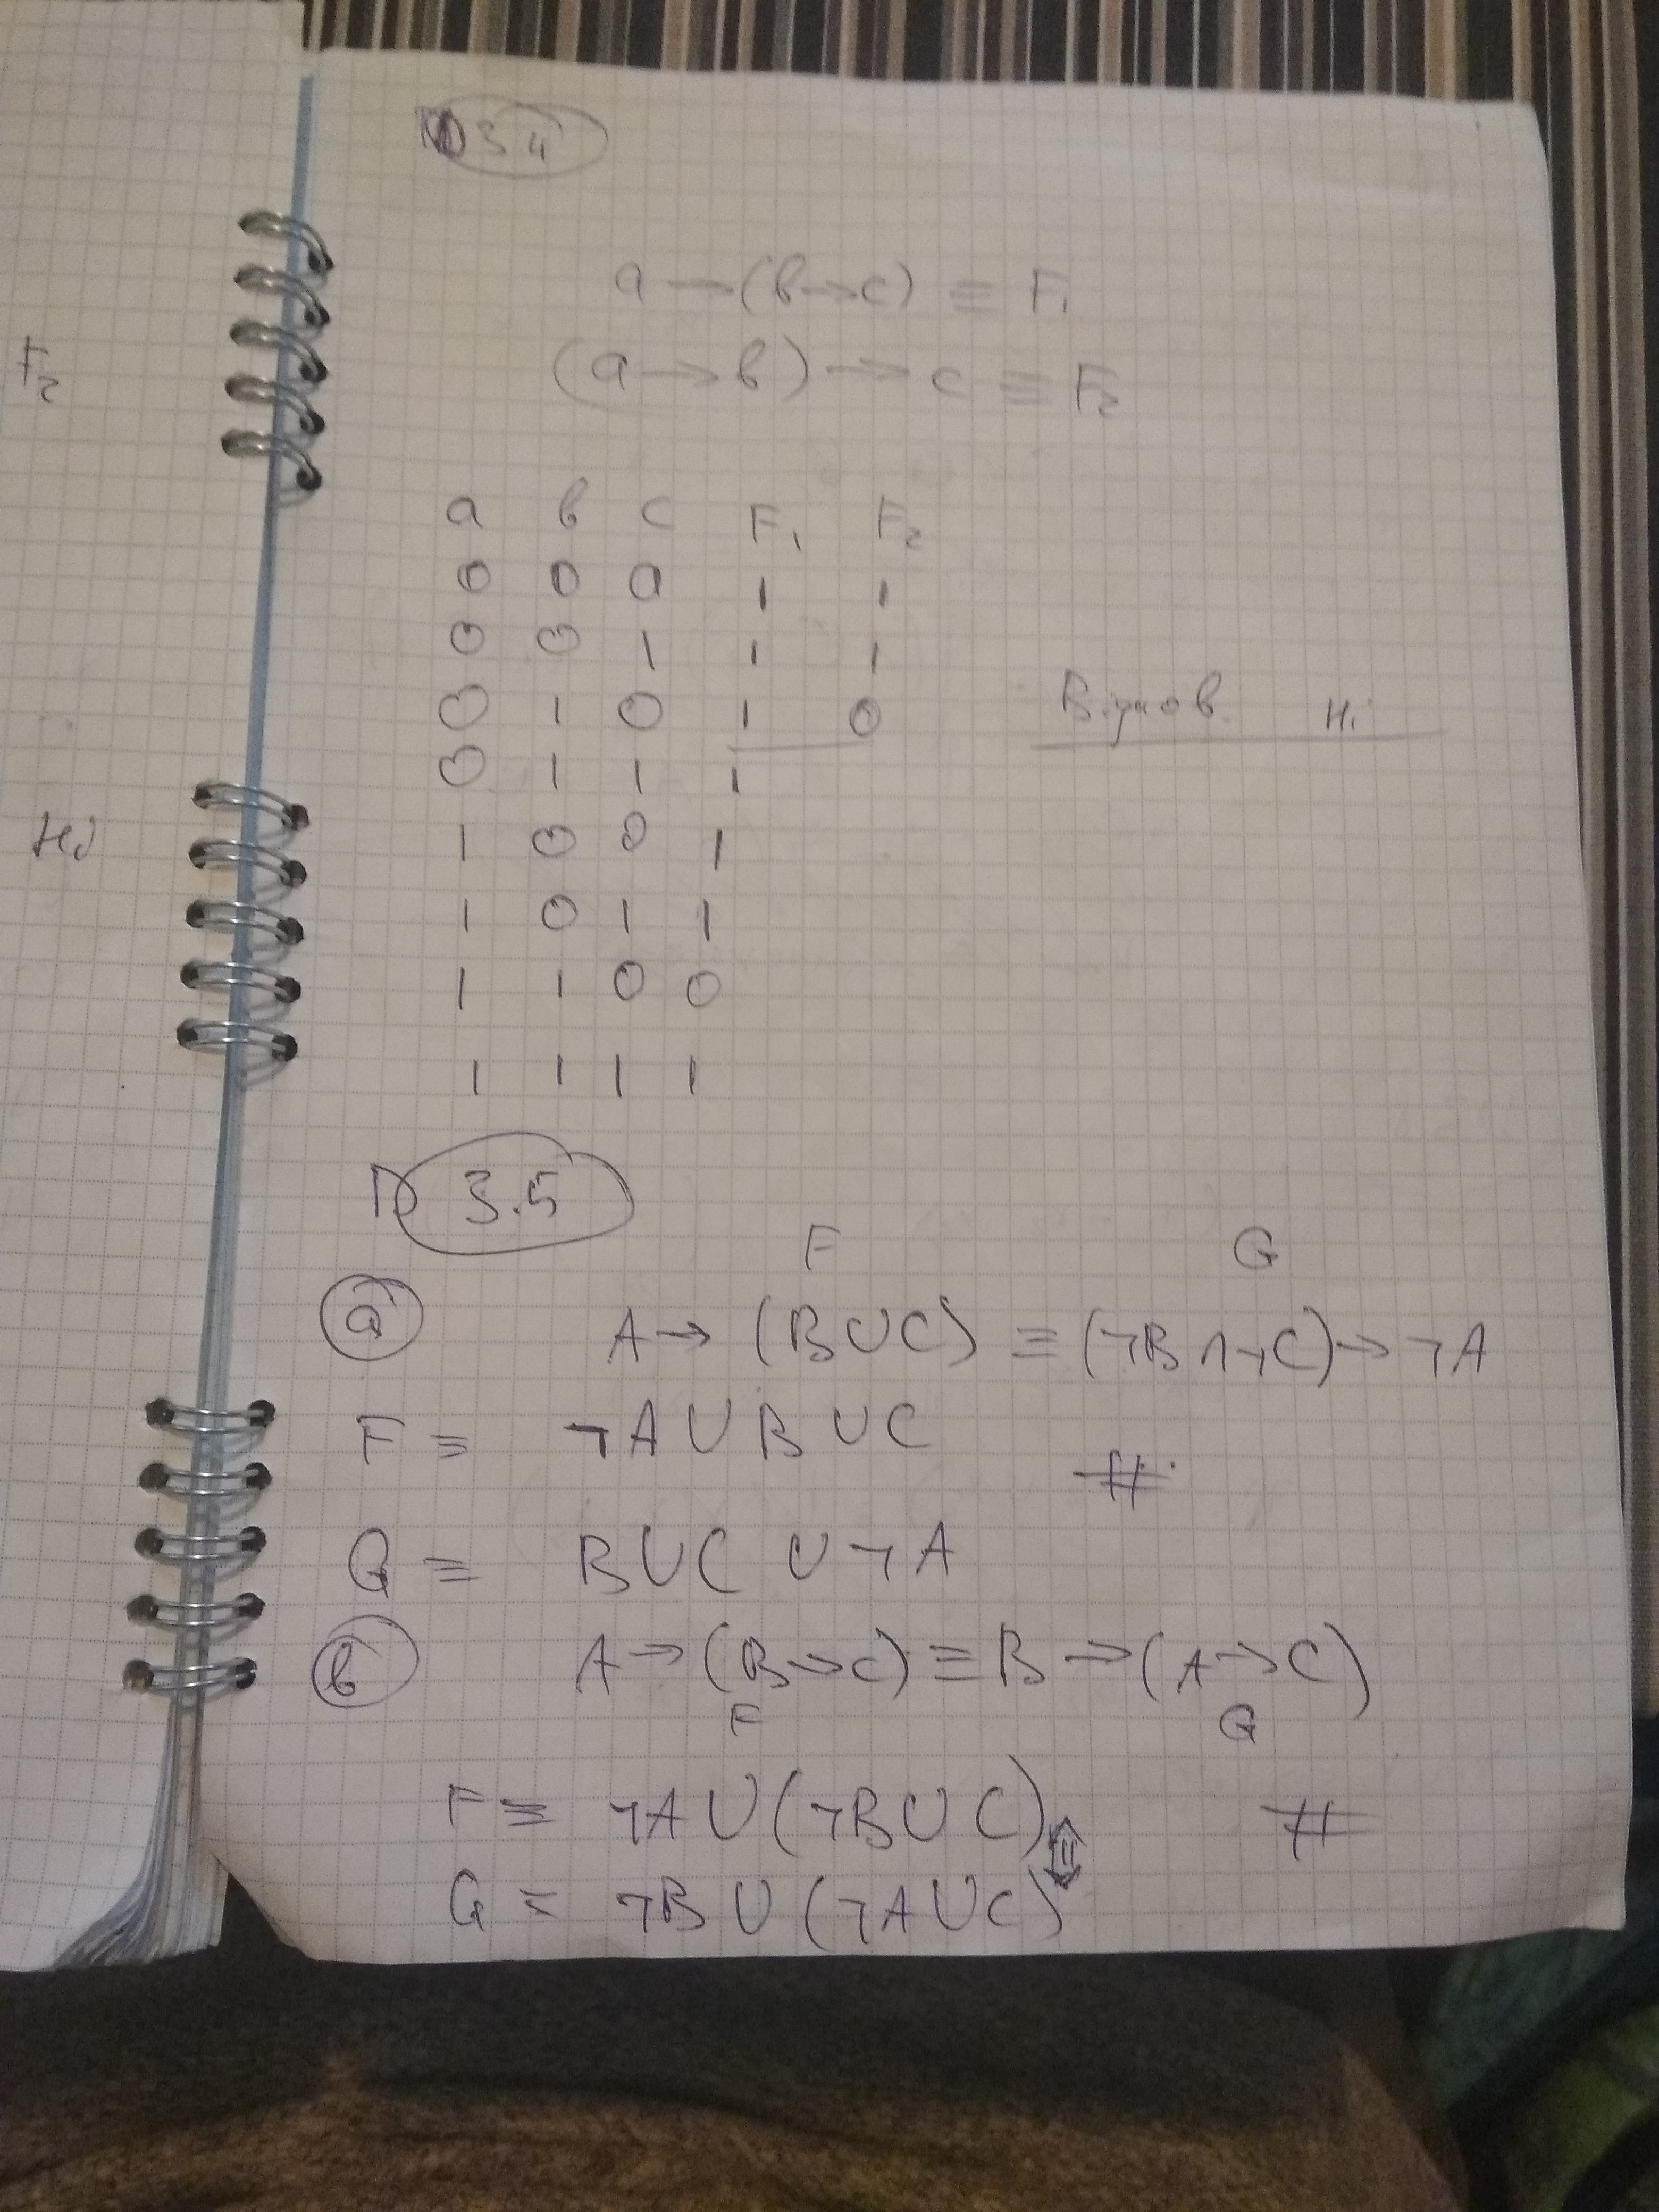 F₂
Ні
3.4
a → (b → c) ≡ F₁
(a → b) → c ≡ F₂
a b c F₁ F₂
0 0 0 1 1
0 0 1 1 1
0 1 0 1 0
Ні
0 1 1 1
1 0 0 1
1 0 1 1
1 1 0 0
1 1 1 1
D 3.5
F G
a A → (B ∪ C) ≡ (¬B ∩ ¬C) → ¬A
F ≡ ¬A ∪ B ∪ C
#
G ≡ B ∪ C ∪ ¬A
b A → (B → C) ≡ B → (A → C)
F G
F ≡ ¬A ∪ (¬B ∪ C) #
G ≡ ¬B ∪ (¬A ∪ C)